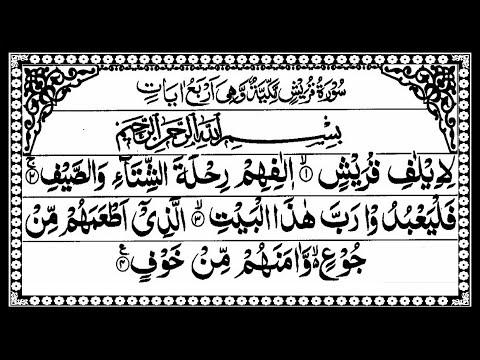 سُوْرَةُ قُرَيْشٍ مَكِّيَّةٌ وَّهِىَ اَرْبَعُ اٰيَاتٍ
بِسْمِ اللّٰهِ الرَّحْمٰنِ الرَّحِيْمِ
لِاِيْلٰفِ قُرَيْشٍ ۙ﴿۱﴾ اٖلٰفِهِمْ رِحْلَةَ الشِّتَآءِ وَالصَّيْفِ ۚ﴿۲﴾
فَلْيَعْبُدُوْا رَبَّ هٰذَا الْبَيْتِ ۙ﴿۳﴾ الَّذِىْٓ اَطْعَمَهُمْ مِّنْ
جُوْعٍ ۙ وَّاٰمَنَهُمْ مِّنْ خَوْفٍ ﴿۴﴾ ع